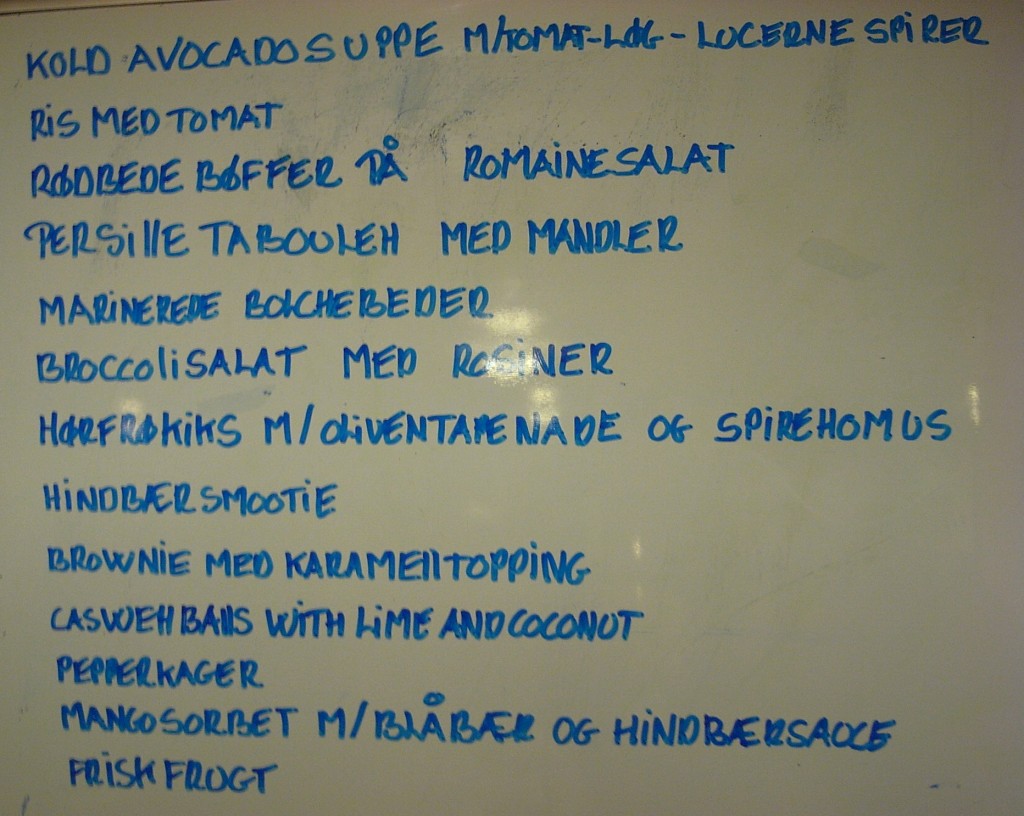 KOLD AVOCADOSUPPE M/TOMAT-LØG-LUCERNESPIRER
RIS MED TOMAT
RØDBEDE BØFFER PÅ ROMAINESALAT
PERSILLE TABOULEH MED MANDLER
MARINEREDE BOLCHEBEDER
BROCCOLISALAT MED ROSINER
HØRFRØKIKS M/OLIVENTAPENADE OG SPIREHOMUS
HINDBÆRSMOOTIE
BROWNIE MED KARAMELLTOPPING
CASWEH BALLS WITH LIME AND COCONUT
PEPPERKAGER
MANGOSORBET M/BLÅBÆR OG HINDBÆRSAUCE
FRISK FRUGT